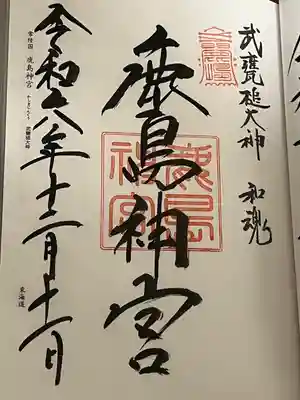 武甕槌大神 和魂
鹿島神宮
鹿島神宮
令和六年十二月十一日
常陸国 鹿島神宮
東海道